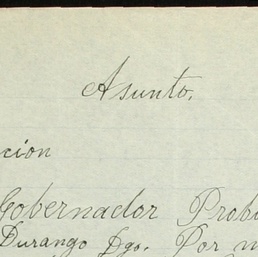 Asunto.
cion
Gobernador Prob
Durango Dgo. Por m